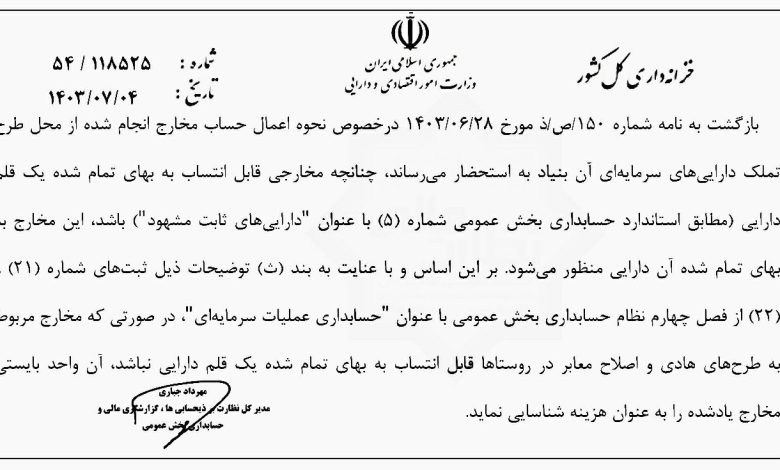 خزانه‌داری کل کشور
جمهوری اسلامی ایران
وزارت امور اقتصادی و دارایی
شماره : ۵۴ / ۱۱۸۵۲۵
تاریخ : ۱۴۰۳/۰۷/۰۴
بازگشت به نامه شماره ۱۵۰/ص/ذ مورخ ۱۴۰۳/۰۶/۲۸ درخصوص نحوه اعمال حساب مخارج انجام شده از محل طرح
تملک دارایی‌های سرمایه‌ای آن بنیاد به استحضار می‌رساند، چنانچه مخارجی قابل انتساب به بهای تمام شده یک قلم
دارایی (مطابق استاندارد حسابداری بخش عمومی شماره (۵) با عنوان "دارایی‌های ثابت مشهود") باشد، این مخارج به
بهای تمام شده آن دارایی منظور می‌شود. بر این اساس و با عنایت به بند (ث) توضیحات ذیل ثبت‌های شماره (۲۱)
(۲۲) از فصل چهارم نظام حسابداری بخش عمومی با عنوان "حسابداری عملیات سرمایه‌ای"، در صورتی که مخارج مربوط
به طرح‌های هادی و اصلاح معابر در روستاها قابل انتساب به بهای تمام شده یک قلم دارایی نباشد، آن واحد بایستی
مخارج یادشده را به عنوان هزینه شناسایی نماید.
مهرداد جباری
مدیر کل نظارت بر ذیحسابی ها ، گزارشگری مالی و
حسابداری بخش عمومی